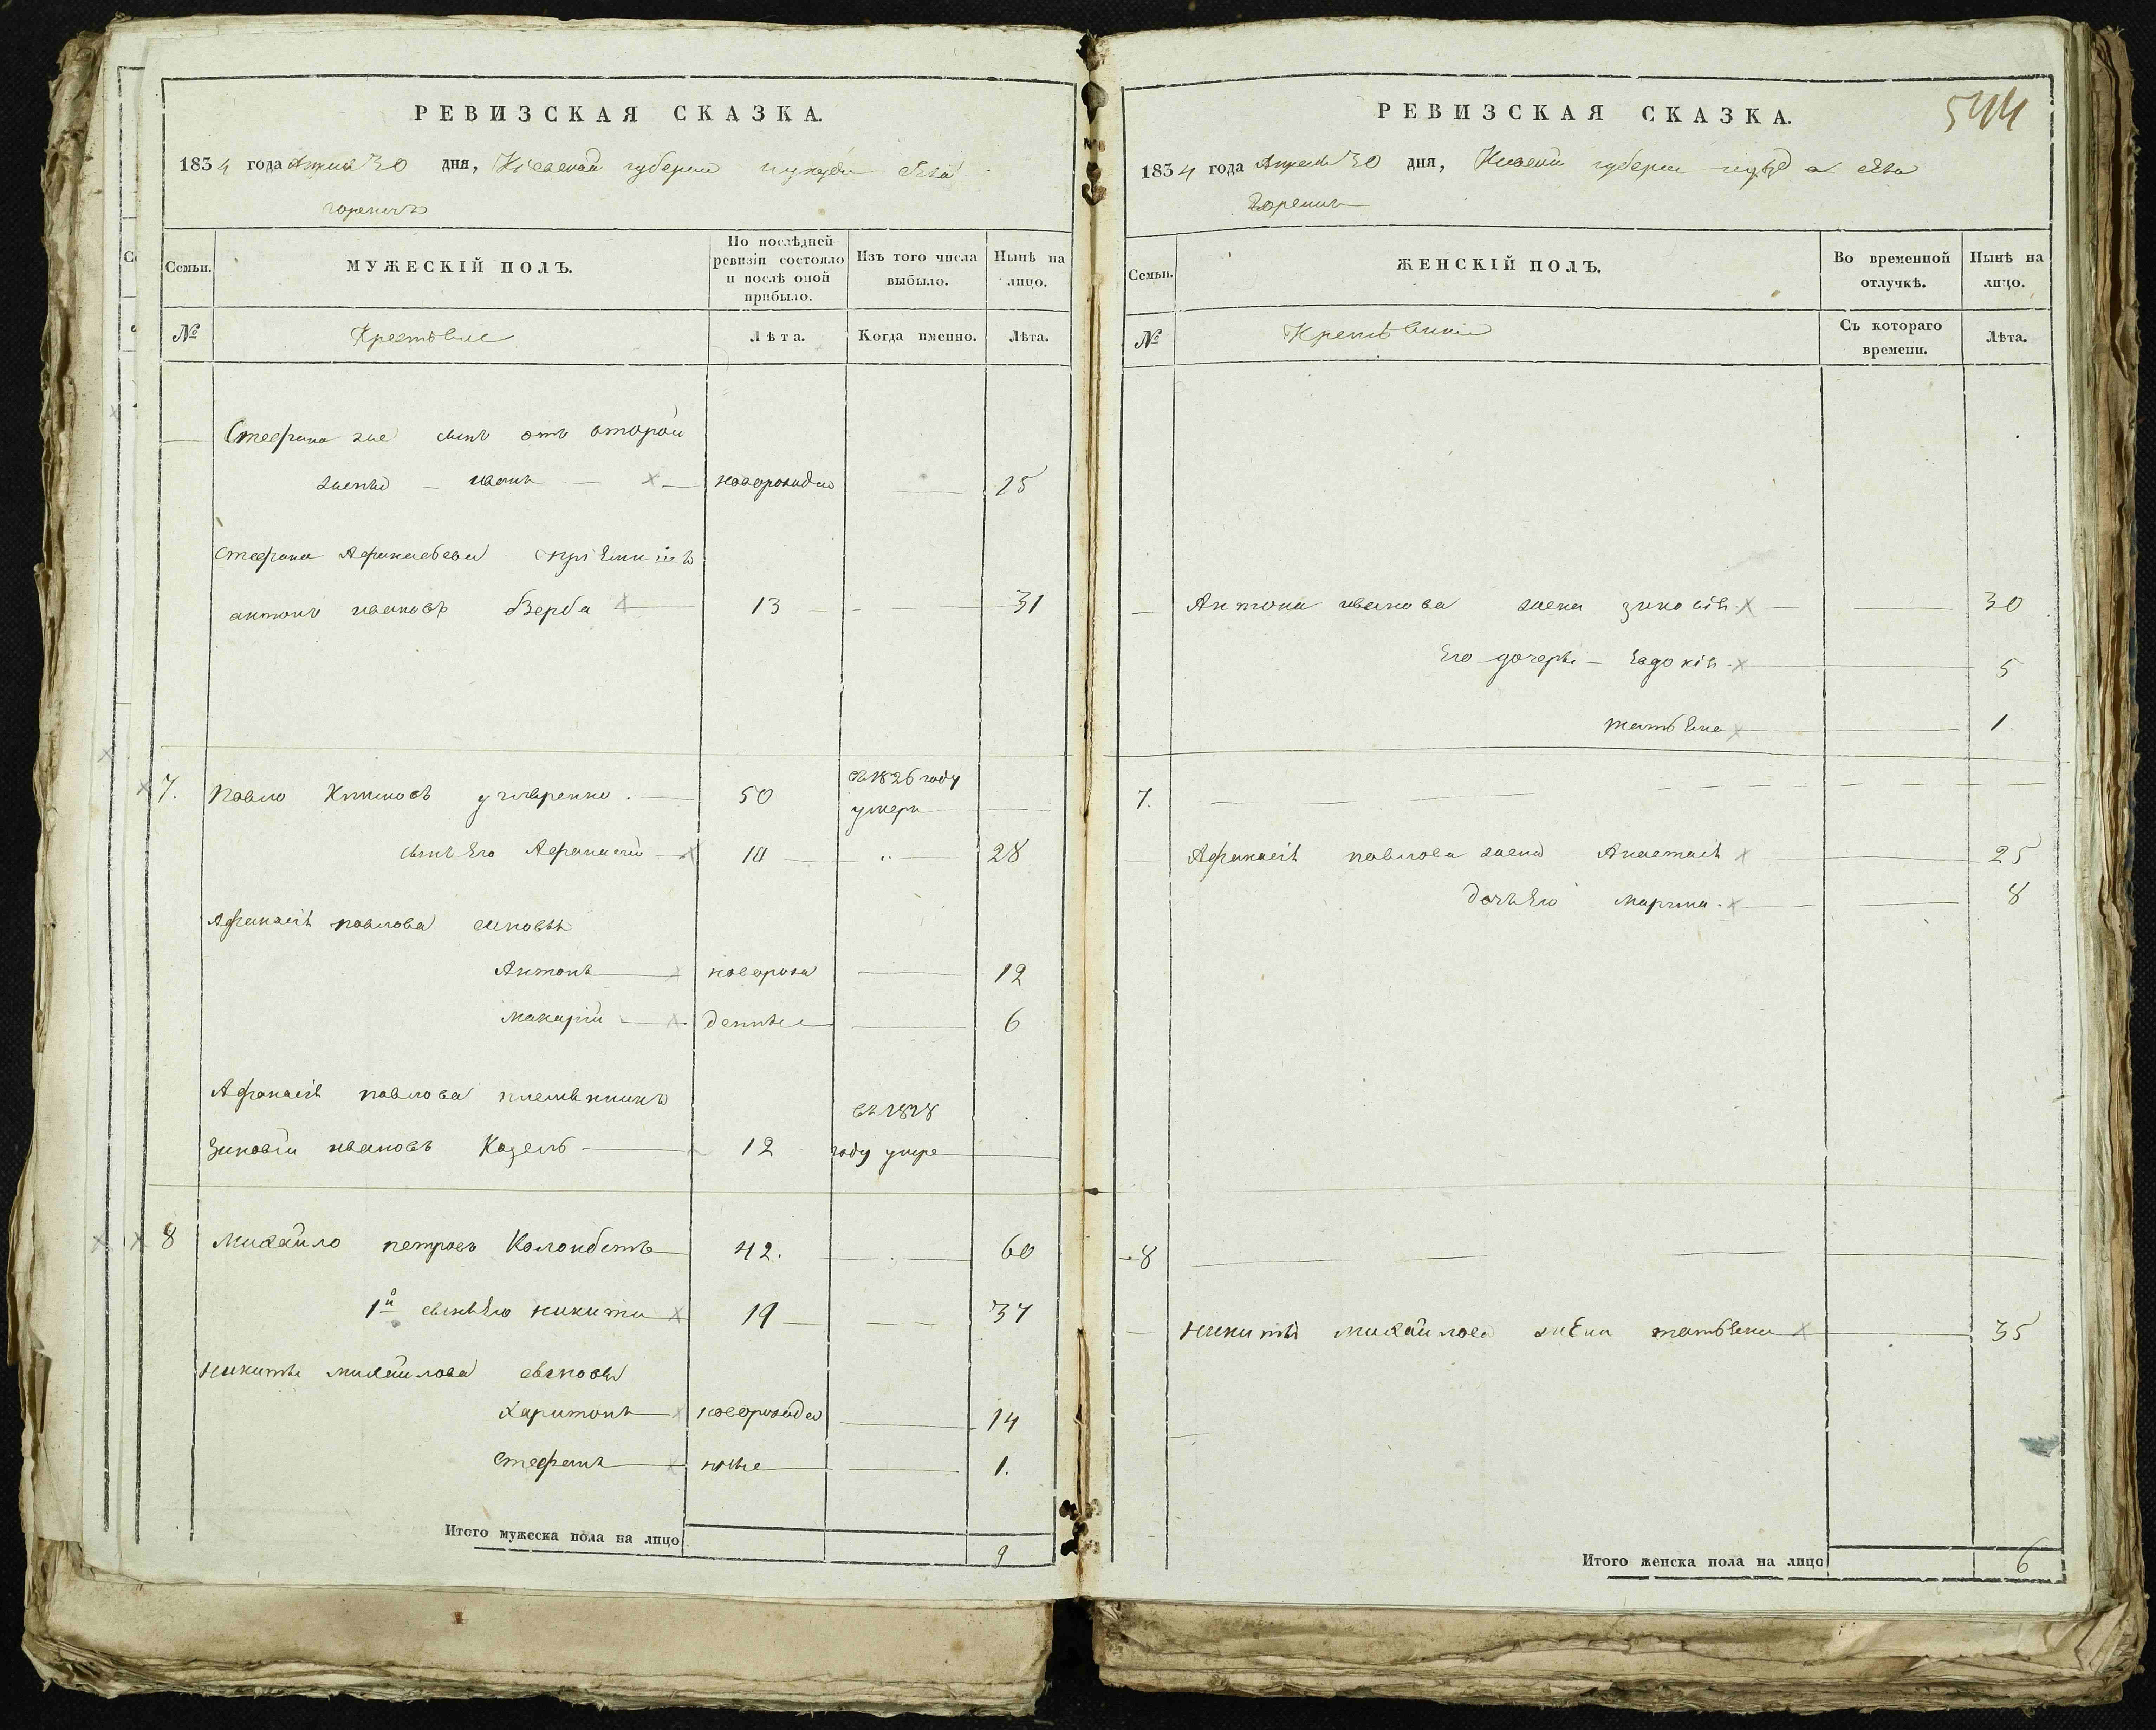 РЕВИЗСКАЯ СКАЗКА.
1834 года Апреля 30 дня, Кіевской губерніи и уезда села
Горенич
Семьи.
МУЖЕСКІЙ ПОЛЪ.
По послѣдней ревизіи состояло и послѣ оной прибыло.
Изъ того числа выбыло.
Нынѣ на лицо.
№
Лѣта.
Когда именно.
Лѣта.
Стефана же сынъ отъ второй
жены – иванъ – новорожден 15
Стефана Афанасьева пріемышъ
антонъ ивановъ Верба 13 – 31
7. Павло 50 въ 1826 году
умеръ
сынъ Его Афанасій 10 28
Афанасія павлова сыновья
Антонъ новорож 12
макарій денные 6
Афанасія павлова племянникъ
въ 1828
Зиновій ивановъ Козелъ 12 году умре
8 Михайло петровъ 42. 60
1й сынъ Его никита 19 37
никиты михайлова сыновья
Харитонъ новорожден 14
Стефанъ ные 1.
Итого мужеска пола на лицо 9
РЕВИЗСКАЯ СКАЗКА.
544
1834 года Апреля 30 дня, Кіевской губерніи и уезда села
Горенич
Семьи.
ЖЕНСКІЙ ПОЛЪ.
Во временной отлучкѣ.
Нынѣ на лицо.
№
Съ котораго времени.
Лѣта.
Антона иванова жена зиновія 30
Его дочери – Евдокія 5
татьяна 1
7.
Афанасія павлова жена Анастасія 25
дочь Его марина 8
8
никиты михайлова жена татьяна 35
Итого женска пола на лицо 6